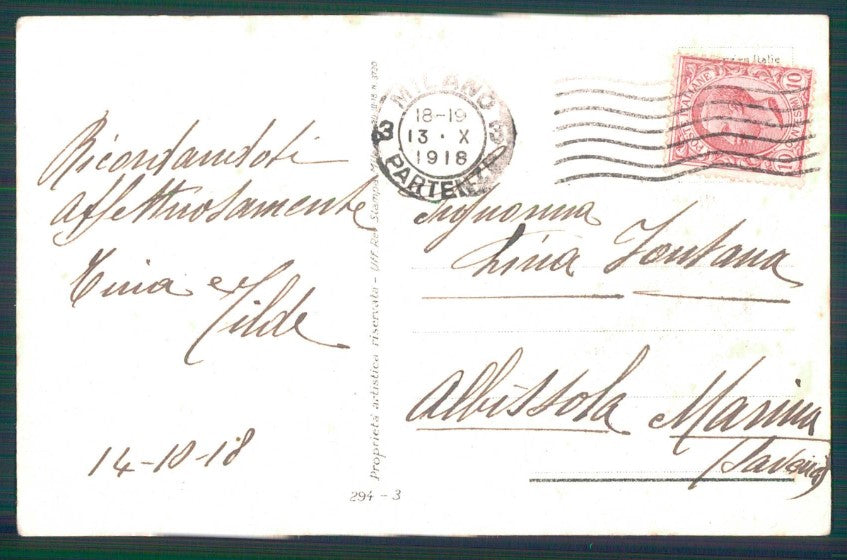 Ricordandoti
affettuosamente
Tina e
Tilde
14-10-18
Proprietà artistica riservata - Uff. Rev. Stampa
294 - 3
MILANO
3 3
18-19
13 · X
1918
PARTENZE
en Italie
10
Signorina
Lina Fontana
Albissola Marina
(Savona)